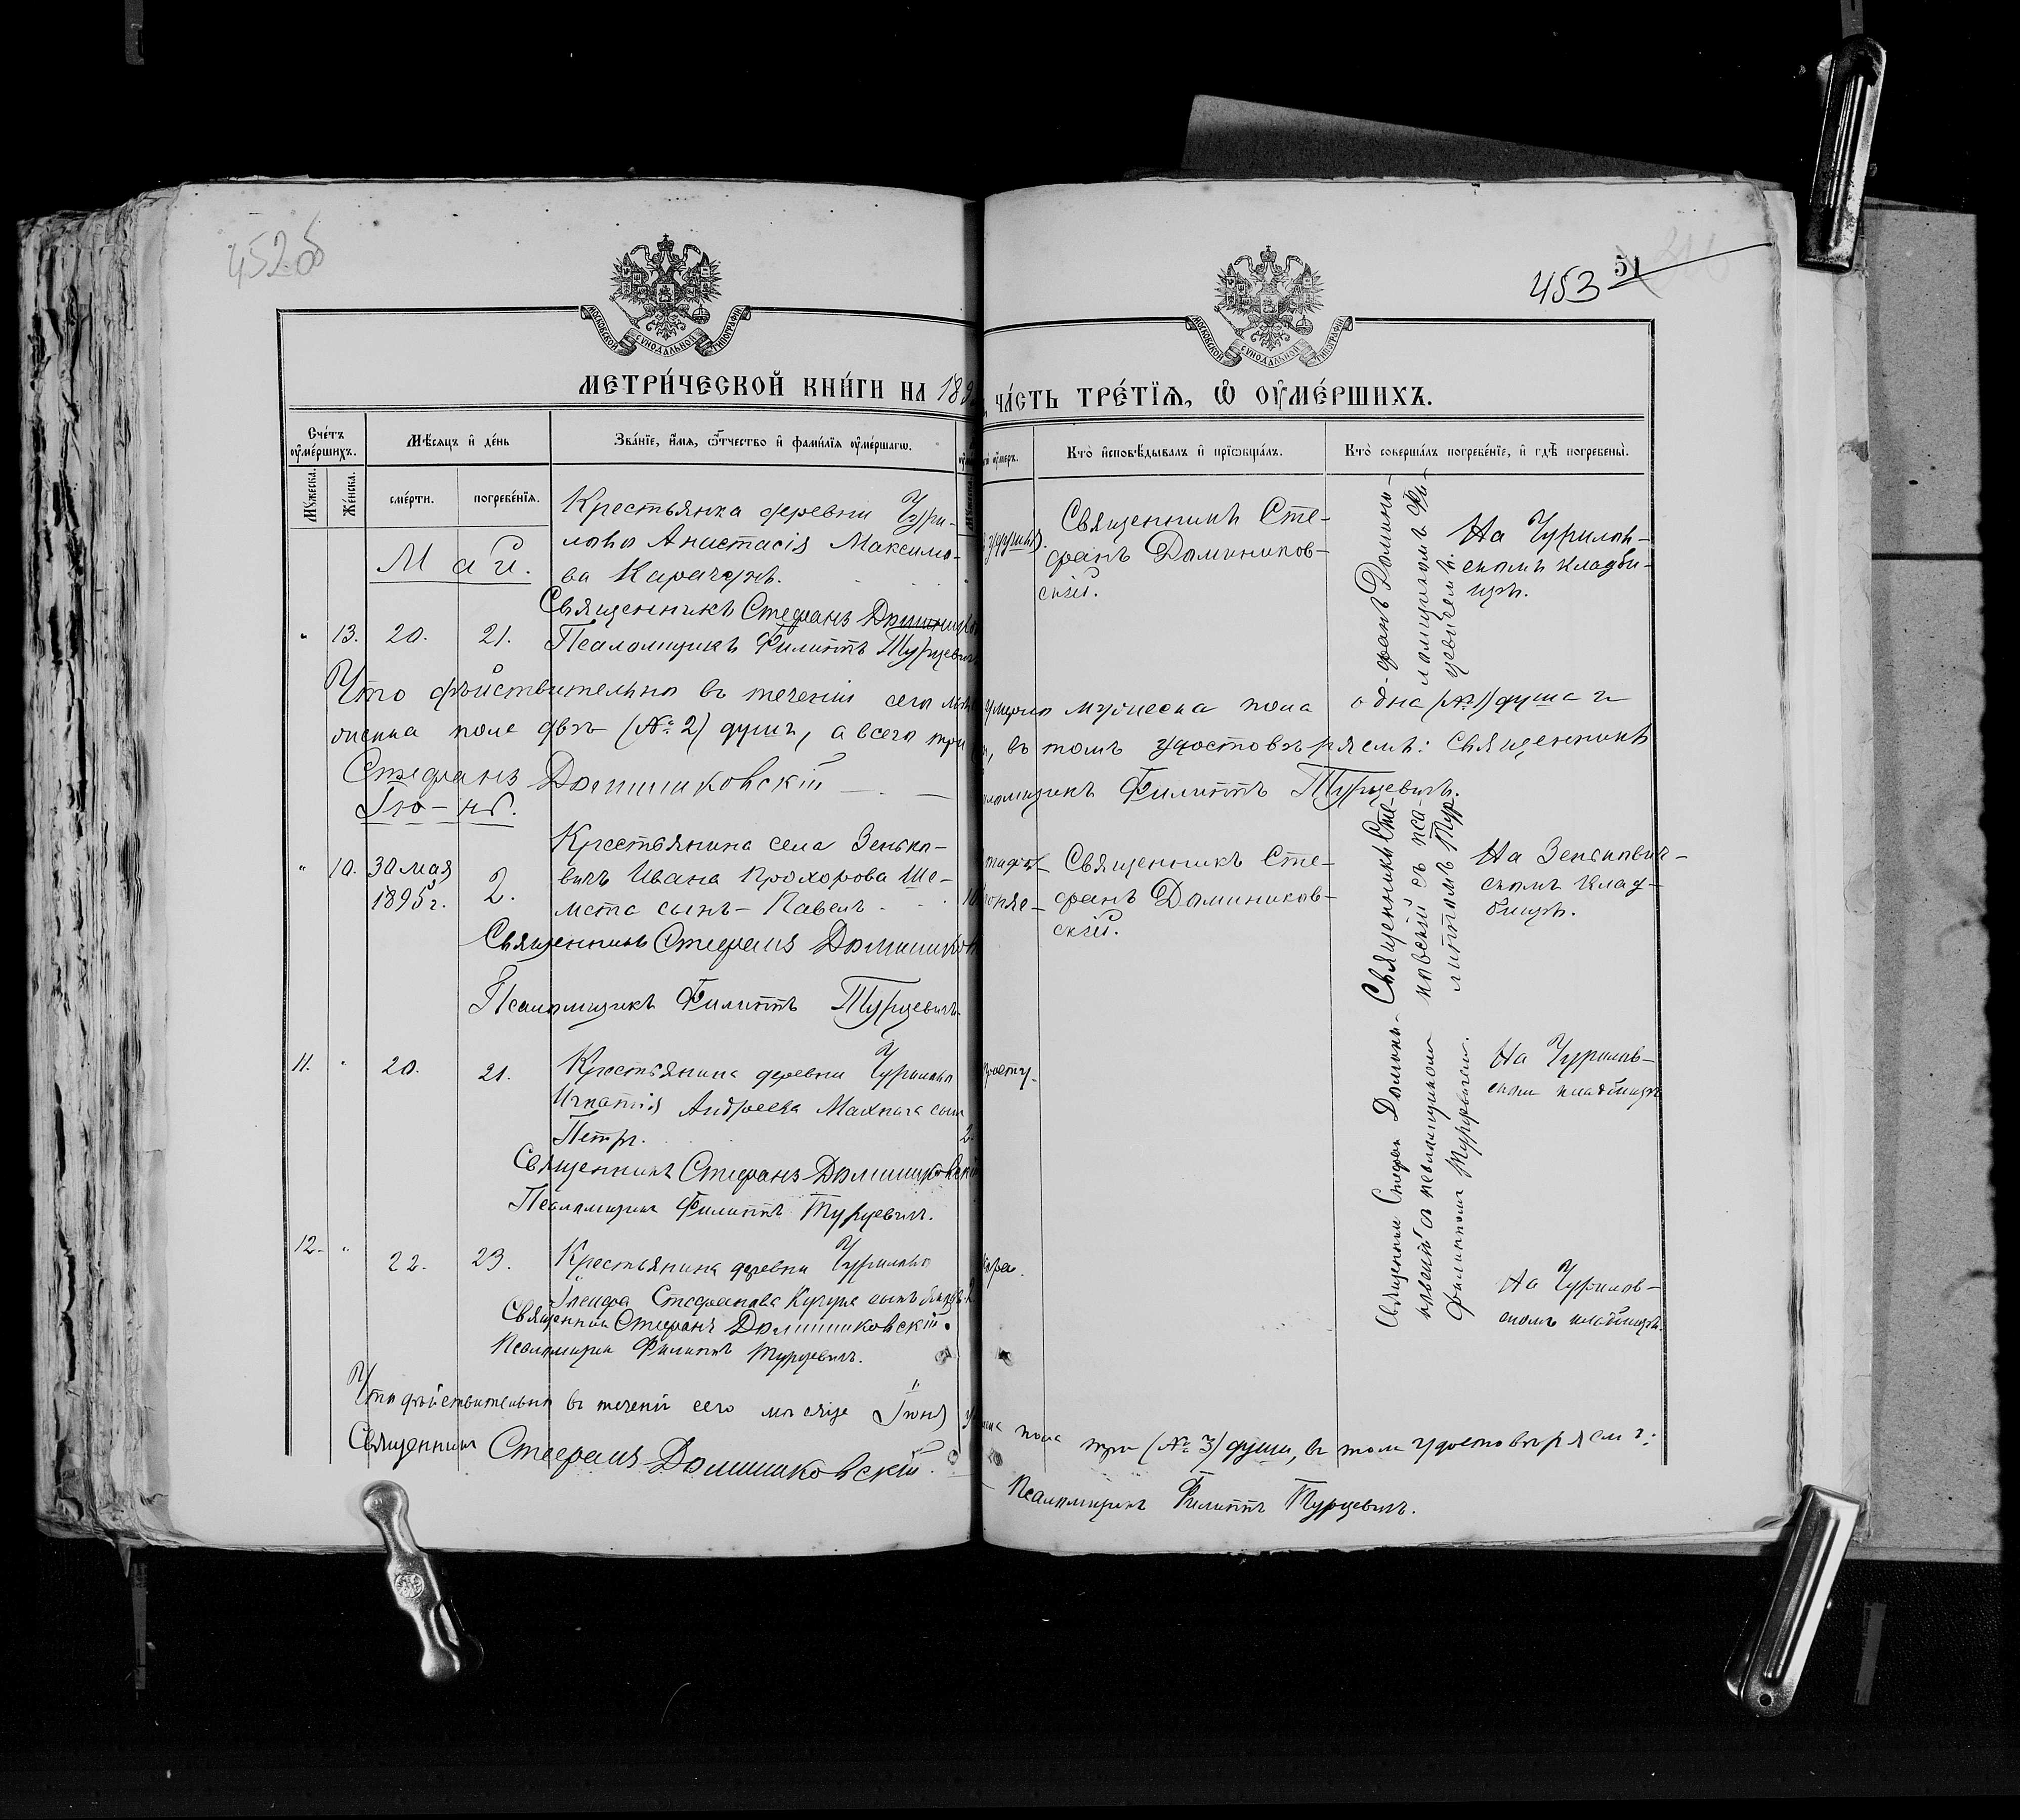 452об
453 51
МОСКОВСКОЙ СѴНОДАЛЬНОЙ ТИПОГРАФІИ
МОСКОВСКОЙ СѴНОДАЛЬНОЙ ТИПОГРАФІИ
МЕТРИ́ЧЕСКОЙ КНИ́ГИ НА 189
ЧА́СТЬ ТРЕ́ТІѦ, Ѽ ОУ҆МЕ́РШИХЪ.
Сче́тъ оу҆ме́ршихъ.
Мꙋ́жеска.
Же́нска.
Мѣ́сяцъ и҆ де́нь
сме́рти.
погребе́нїѧ.
Зва́нїе, и҆́мѧ, ѻ҆́тчество и҆ фами́лїѧ оу҆ме́ршагѡ.
оу҆́меръ.
Кто̀ и҆сповѣ́дывалъ и҆ прїѡбща́лъ.
Кто̀ соверша́лъ погребе́нїе, и҆ гдѣ̀ погребены̀.
Май.
" 13. 20. 21.
Крестьянка деревни Чури-
лово Анастасія Максимо-
ва
Священникъ Стефанъ
Псаломщикъ Филиппъ Турцевичъ
Священникъ Сте-
фанъ Домиников-
скій.
На Чурилов-
скомъ кладби-
щѣ.
Что дѣйствительно въ теченіи сего умерло мужеска пола одна (№ 1) душа и
женска пола двѣ (№ 2) души, а всего три въ томъ удостовѣряемъ: Священникъ
Стефанъ Доминиковскій Филиппъ Турцевичъ.
Іюнь.
" 10. 30 мая
1895 г. 2.
Крестьянина села Зенько-
вичъ Ивана Прохорова Ше-
мета сынъ – Павелъ
Священникъ Стефанъ
Псаломщикъ Филиппъ Турцевичъ
Священникъ Сте-
фанъ Домиников-
скій.
Священникъ Сте-
фанъ Домини-
ковскій съ пса-
ломщикомъ Фи-
липпомъ Тур
цевичемъ.
На Зенькович-
скомъ клад-
бищѣ.
11. " 20. 21.
Крестьянина деревни Чурилово
Игнатія Андреева Махнача сынъ
Петръ.
Священникъ Стефанъ Доминиковскій
Псаломщикъ Филиппъ Турцевичъ.
Священникъ Стефанъ Домини-
ковскій съ псаломщикомъ
Филиппомъ Турцевичемъ.
На Чурилов-
скомъ кладбищѣ
12. " 22. 23.
Крестьянина деревни Чурилово
Стефанова
Священникъ Стефанъ Доминиковскій.
Псаломщикъ Филиппъ Турцевичъ.
На Чурилов-
скомъ кладбищѣ.
Что дѣйствительно въ теченіи сего мѣсяца Іюня пола три (№ 3) души, въ томъ удостовѣряемъ:
Священникъ Стефанъ Доминиковскій. Псаломщикъ Филиппъ Турцевичъ.